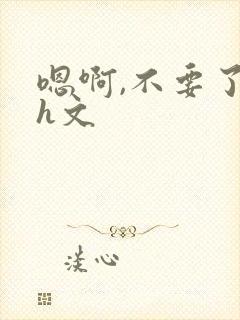 嗯啊,不要了
h文
淡心